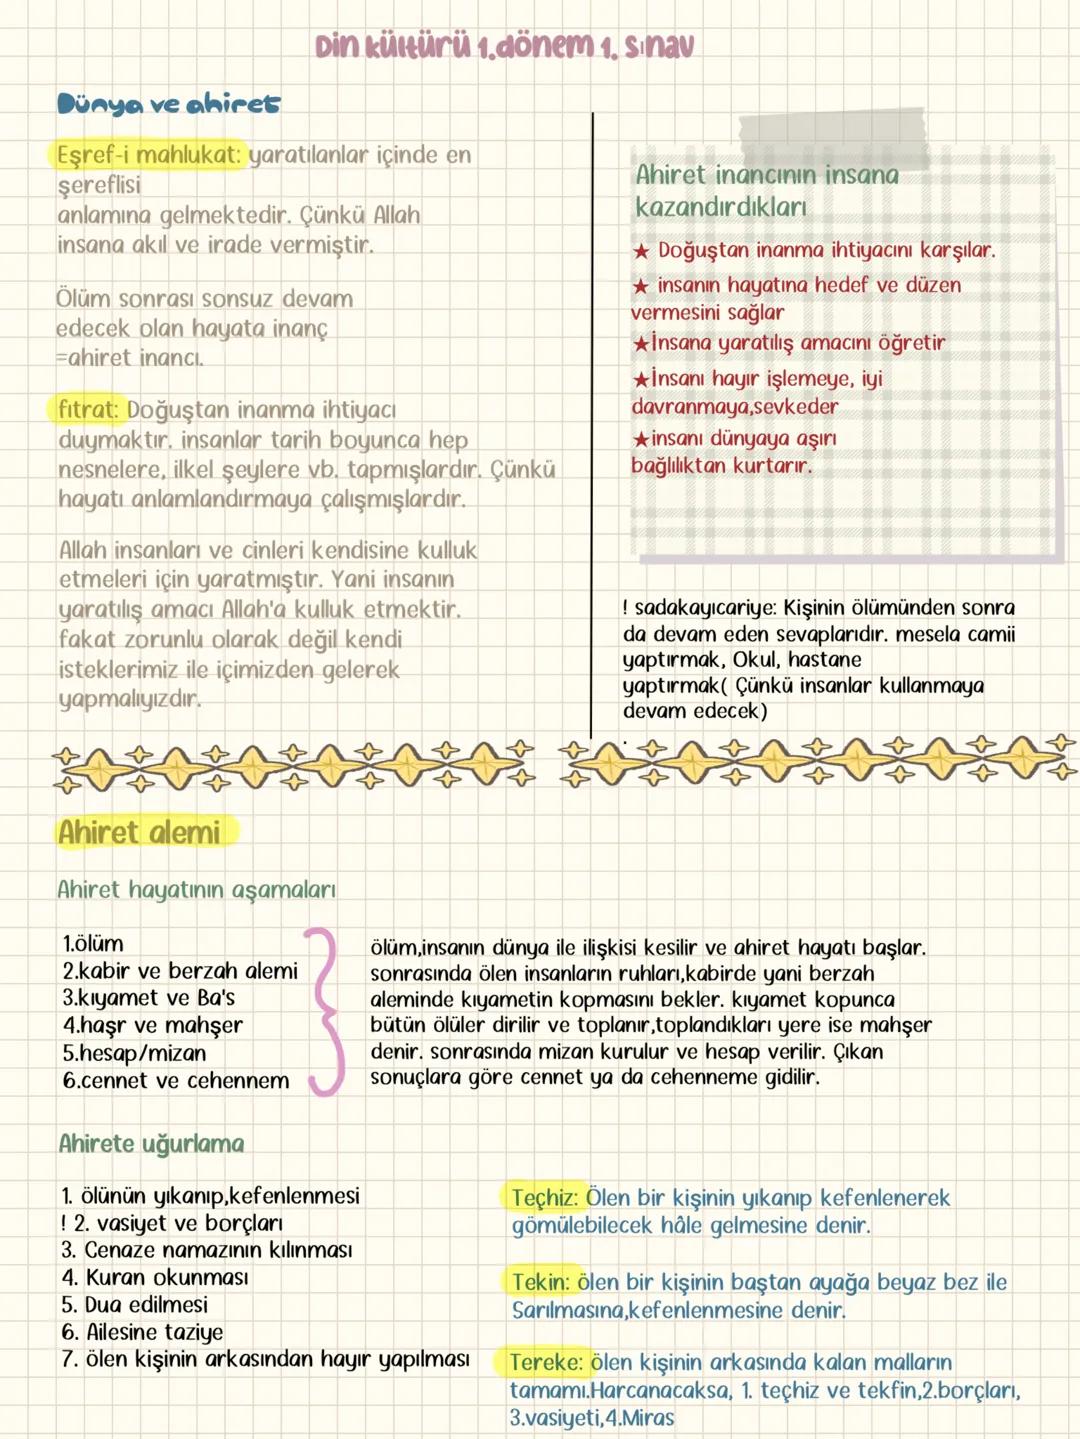 Din kültürü 1.dönem 1. sınav
Dünya ve ahiret
Eşref-i mahlukat: yaratılanlar içinde en
şereflisi
anlamına gelmektedir. Çünkü Allah
insana akıl ve irade vermiştir.
Ölüm sonrası sonsuz devam
edecek olan hayata inanç
=ahiret inancı.
fıtrat: Doğuştan inanma ihtiyacı
duymaktır. insanlar tarih boyunca hep
nesnelere, ilkel şeylere vb. tapmışlardır. Çünkü
hayatı anlamlandırmaya çalışmışlardır.
Allah insanları ve cinleri kendisine kulluk
etmeleri için yaratmıştır. Yani insanın
yaratılış amacı Allah'a kulluk etmektir.
fakat zorunlu olarak değil kendi
isteklerimiz ile içimizden gelerek
yapmalıyızdır.
Ahiret inancının insana
kazandırdıkları
★ Doğuştan inanma ihtiyacını karşılar.
★ insanın hayatına hedef ve düzen
vermesini sağlar
★İnsana yaratılış amacını öğretir
★İnsanı hayır işlemeye, iyi
davranmaya,sevkeder
★insanı dünyaya aşırı
bağlılıktan kurtarır.
! sadakayıcariye: Kişinin ölümünden sonra
da devam eden sevaplarıdır. mesela camii
yaptırmak, Okul, hastane
yaptırmak( Çünkü insanlar kullanmaya
devam edecek)
.
Ahiret alemi
Ahiret hayatının aşamaları
1.ölüm
2.kabir ve berzah alemi
3.kıyamet ve Ba's
4.haşr ve mahşer
5.hesap/mizan
6.cennet ve cehennem
ölüm,insanın dünya ile ilişkisi kesilir ve ahiret hayatı başlar.
sonrasında ölen insanların ruhları,kabirde yani berzah
aleminde kıyametin kopmasını bekler. kıyamet kopunca
bütün ölüler dirilir ve toplanır,toplandıkları yere ise mahşer
denir. sonrasında mizan kurulur ve hesap verilir. Çıkan
sonuçlara göre cennet ya da cehenneme gidilir.
Ahirete uğurlama
1. ölünün yıkanıp,kefenlenmesi
! 2. vasiyet ve borçları
3. Cenaze namazının kılınması
4. Kuran okunması
5. Dua edilmesi
6. Ailesine taziye
7. ölen kişinin arkasından hayır yapılması
Teçhiz: Ölen bir kişinin yıkanıp kefenlenerek
gömülebilecek hâle gelmesine denir.
Tekin: ölen bir kişinin baştan ayağa beyaz bez ile
Sarılmasına,kefenlenmesine denir.
Tereke: ölen kişinin arkasında kalan malların
tamamı.Harcanacaksa, 1. teçhiz ve tekfin,2.borçları,
3.vasiyeti,4.Miras